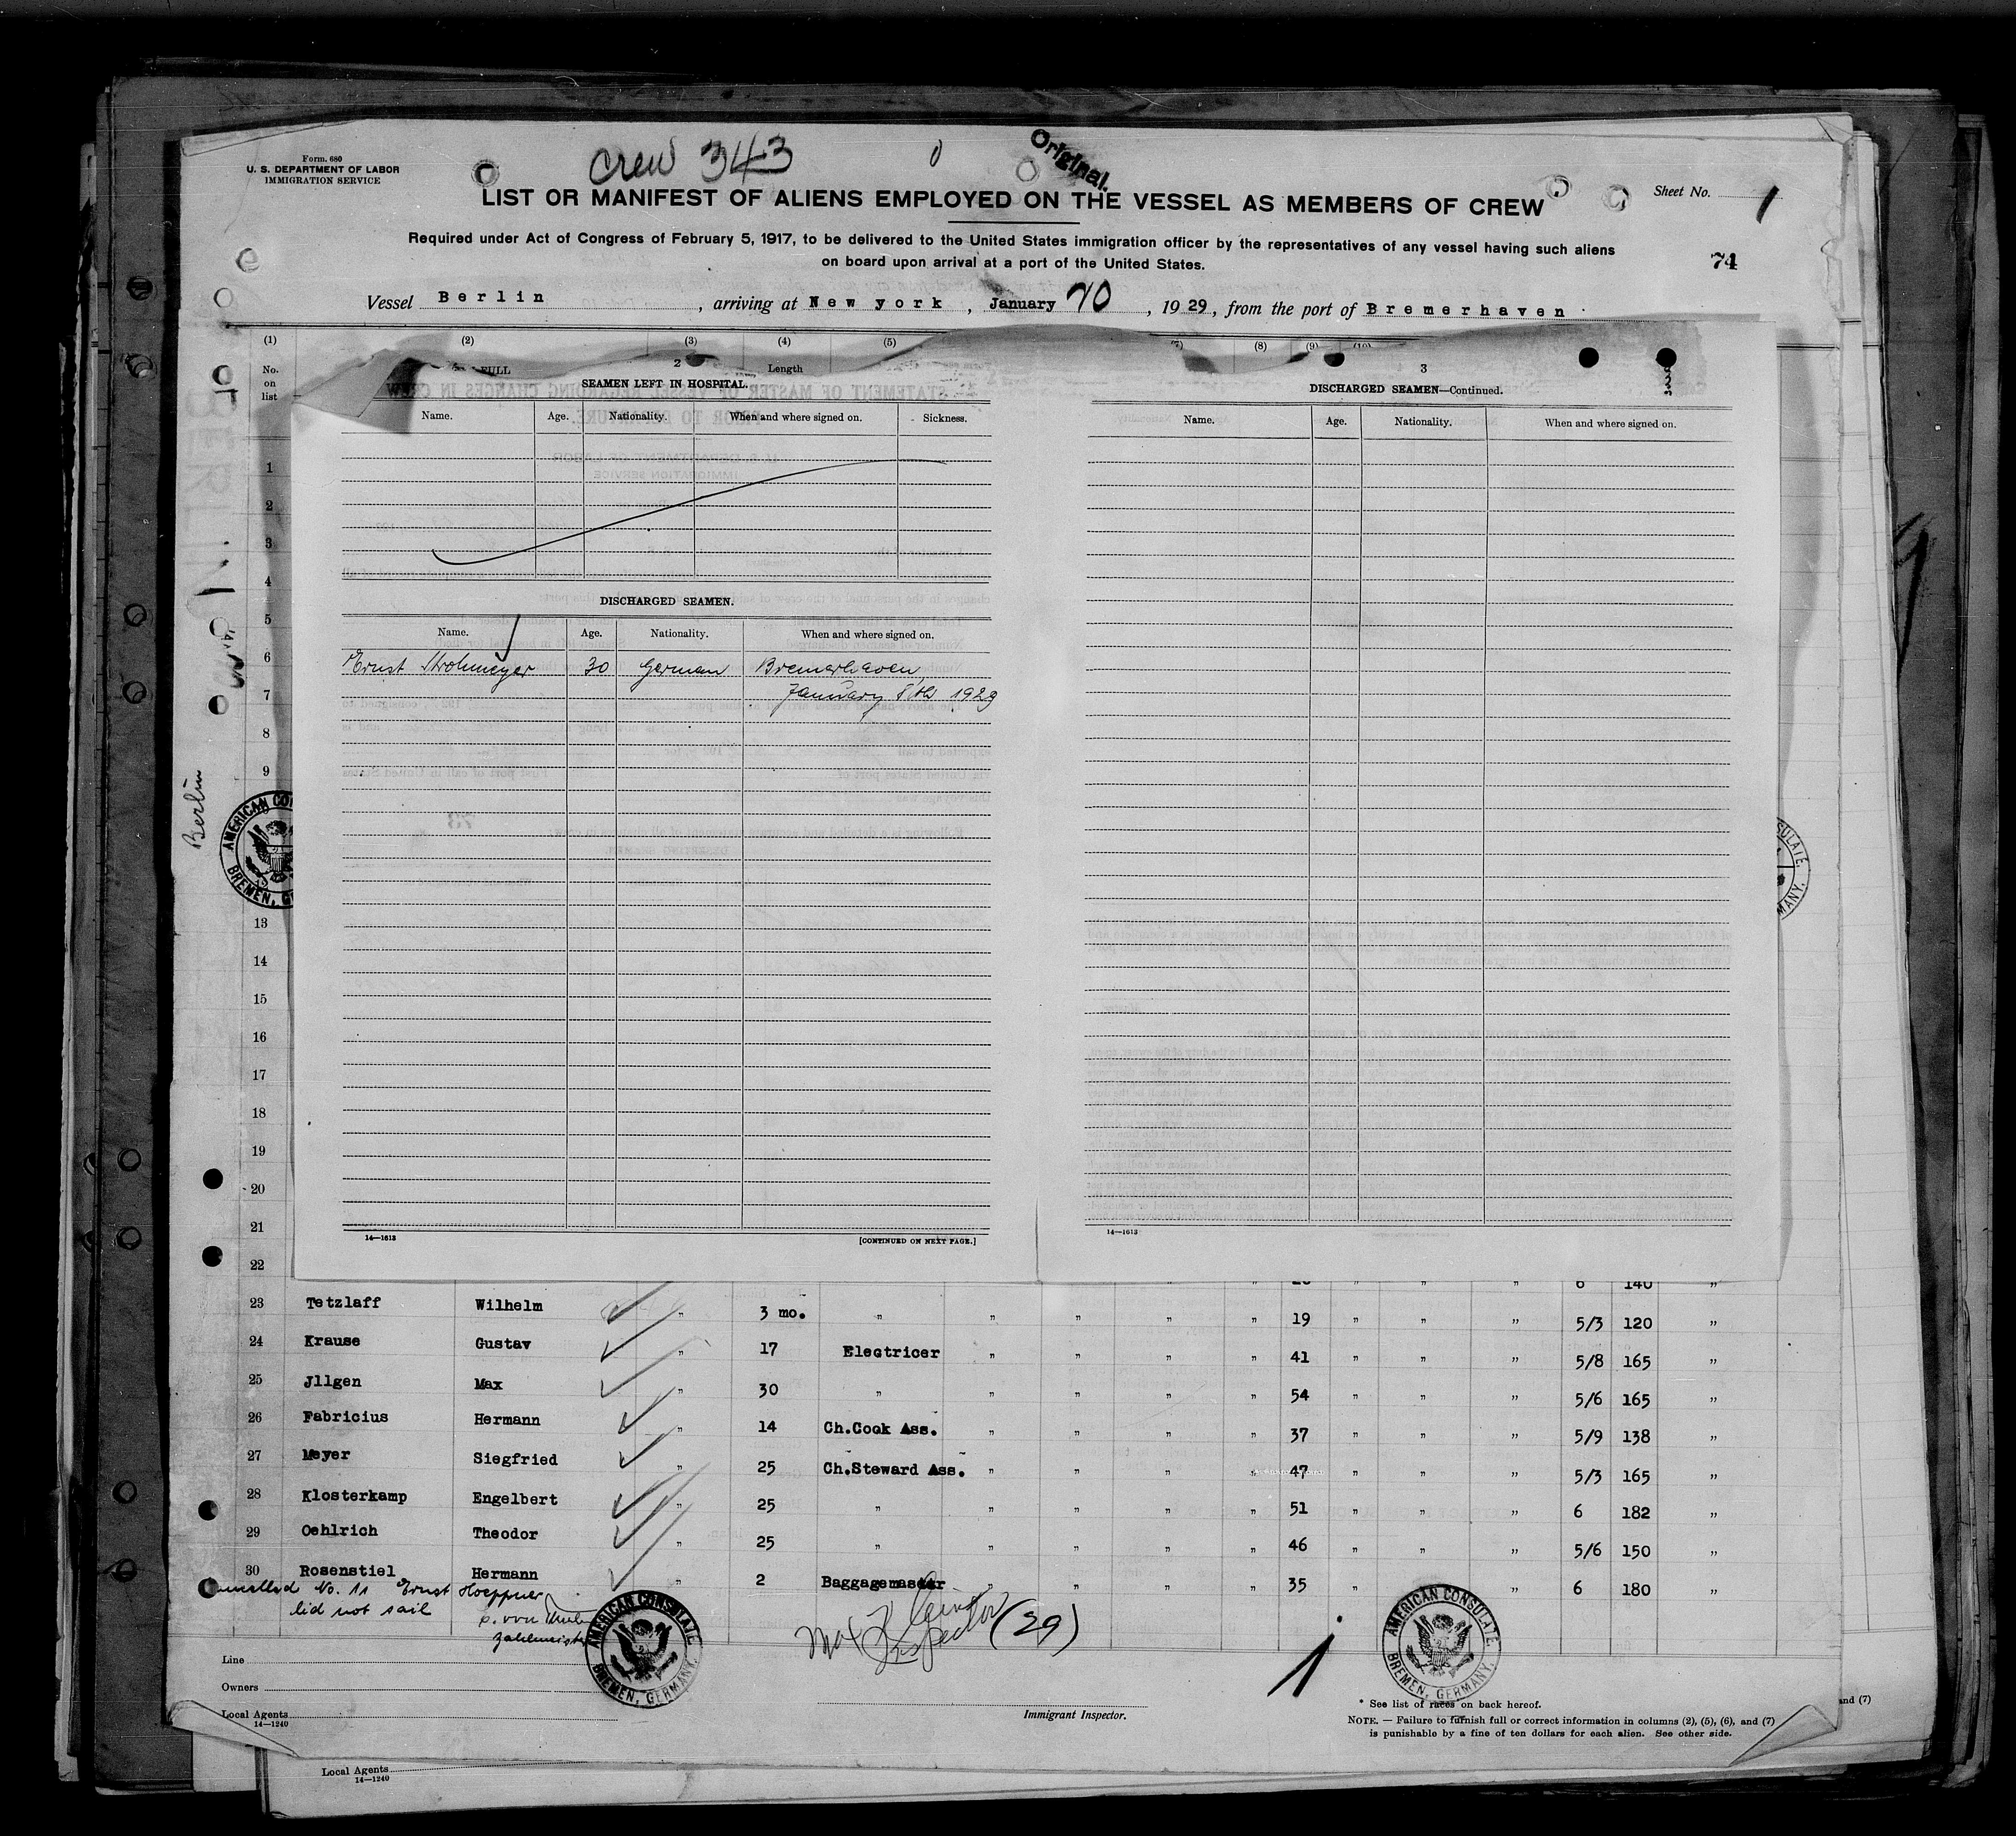 Form. 680
U. S. DEPARTMENT OF LABOR
IMMIGRATION SERVICE
Crew 343
Original.
Sheet No. 1
LIST OR MANIFEST OF ALIENS EMPLOYED ON THE VESSEL AS MEMBERS OF CREW
Required under Act of Congress of February 5, 1917, to be delivered to the United States immigration officer by the representatives of any vessel having such aliens
on board upon arrival at a port of the United States.
74
Vessel Berlin, arriving at New york, January 20, 1929, from the port of Bremerhaven
(1) (2) (3) (4) (5) (8) (9) (10)
No. on list
FULL
Length
2
SEAMEN LEFT IN HOSPITAL.
Name. Age. Nationality. When and where signed on. Sickness.
DISCHARGED SEAMEN.
Name. Age. Nationality. When and where signed on.
Ernst Strohmeyer 30 German Bremerhaven,
January 8th 1929
14—1613
[CONTINUED ON NEXT PAGE.]
3
DISCHARGED SEAMEN—Continued.
Name. Age. Nationality. When and where signed on.
14—1613
Berlin
AMERICAN CO
BREMEN, G
SULATE,
MANY.
1
2
3
4
5
6
7
8
9
13
14
15
16
17
18
19
20
21
22 6 140 "
23 Tetzlaff Wilhelm " 3 mo. " " " " " 19 " " " 5/3 120 "
24 Krause Gustav " 17 Electricer " " " " 41 " " " 5/8 165 "
25 Jllgen Max " 30 " " " " " 54 " " " 5/6 165 "
26 Fabricius Hermann " 14 Ch.Cook Ass. " " " " 37 " " " 5/9 138 "
27 Meyer Siegfried " 25 Ch.Steward Ass. " " " " 47 " " " 5/3 165 "
28 Klosterkamp Engelbert " 25 " " " " " 51 " " " 6 182 "
29 Oehlrich Theodor " 25 " " " " " 46 " " " 5/6 150 "
30 Rosenstiel Hermann " 2 Baggagemaster " " " " 35 " " 6 180 "
No. 11 Ernst Hoeppner
did not sail
Zahlmeister
Max
Inspector (29)
1
AMERICAN CONSULATE,
BREMEN, GERMANY.
AMERICAN CONSULATE,
BREMEN, GERMANY.
Line
Owners
Local Agents
14—1240
Immigrant Inspector.
* See list of races on back hereof.
NOTE. — Failure to furnish full or correct information in columns (2), (5), (6), and (7)
is punishable by a fine of ten dollars for each alien. See other side.
and (7)
Local Agents
14—1240